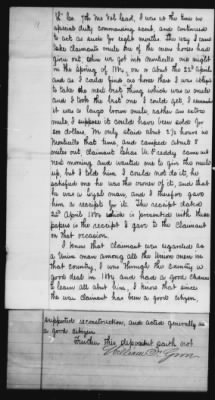 Co. 7th Mo Vol Cav, I was at the time on
special duty commissary dept. and continued
to act as such for eight months. The way I came
take claimants mule one of the men horses had
give out when we got into Huntsville one night
in the Spring of 1864, on or about the 22d April
and as I could find no horse that I was obliged
to take the next best thing which was a mule
and I took the best one I could get, I remember
it was a large brown mule, rather an extra
mule, I suppose it could have been sold for
200 dollars. We only staid about 2½ hours in
Huntsville that time, and camped about 8
miles out claimant came up
next morning and wanted me to give the mule
up, but I told him I could not do it, he
satisfied me he was the owner of it, and that
he was a loyal man, and I therefore gave
him a receipt for it. The receipt dated
22d April 1864 which is presented with these
papers is the receipt I gave to the claimant
on that occasion.
I know that claimant was regarded as
a Union man among all the Union men in
that country, I was through the county a
good deal in 1864 and had a good chance
to learn all about him, I know that since
the war claimant has been a good citizen,
supported reconstruction, and acted generally as
a good citizen
Further this deponent saith not